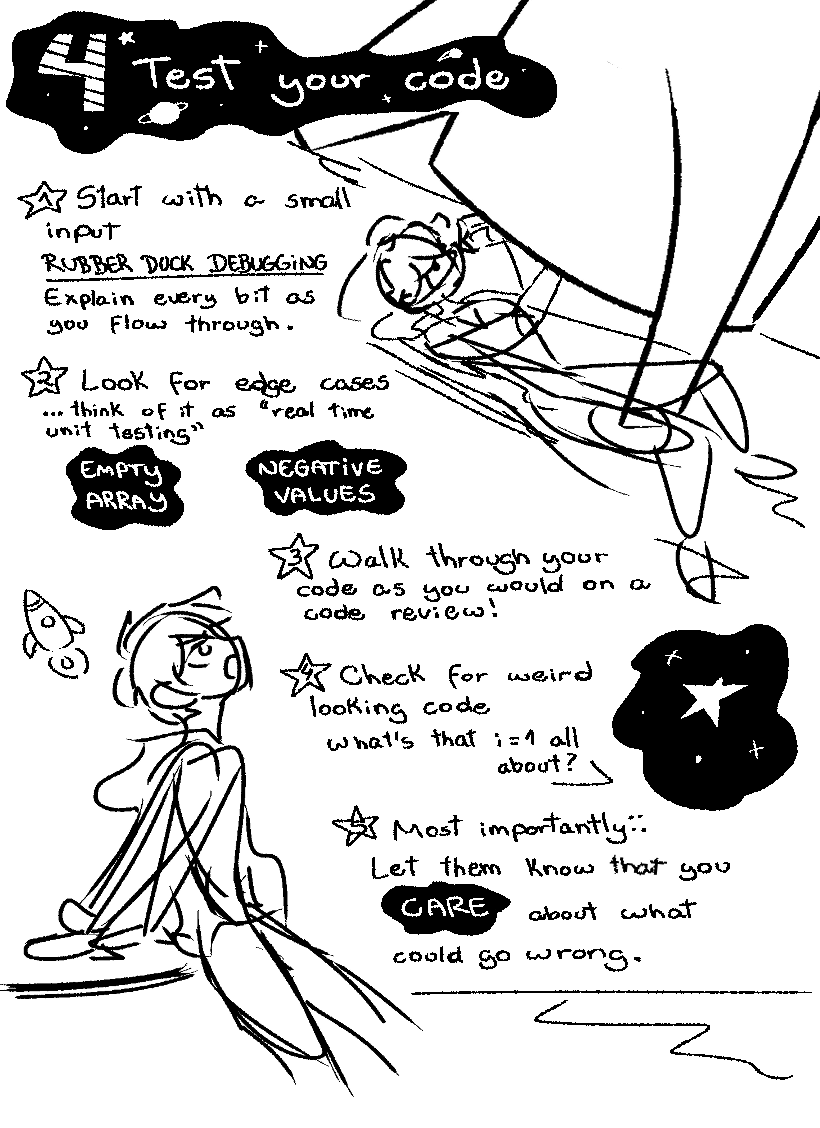 4 Test your code
1 Start with a small
input
RUBBER DUCK DEBUGGING
Explain every bit as
you flow through.
2 Look for edge cases
... think of it as "real time
unit testing"
EMPTY
ARRAY
NEGATIVE
VALUES
3 Walk through your
code as you would on a
code review!
4 Check for weird
looking code
what's that i=1 all
about?
5 Most importantly::
Let them know that you
CARE about what
could go wrong.